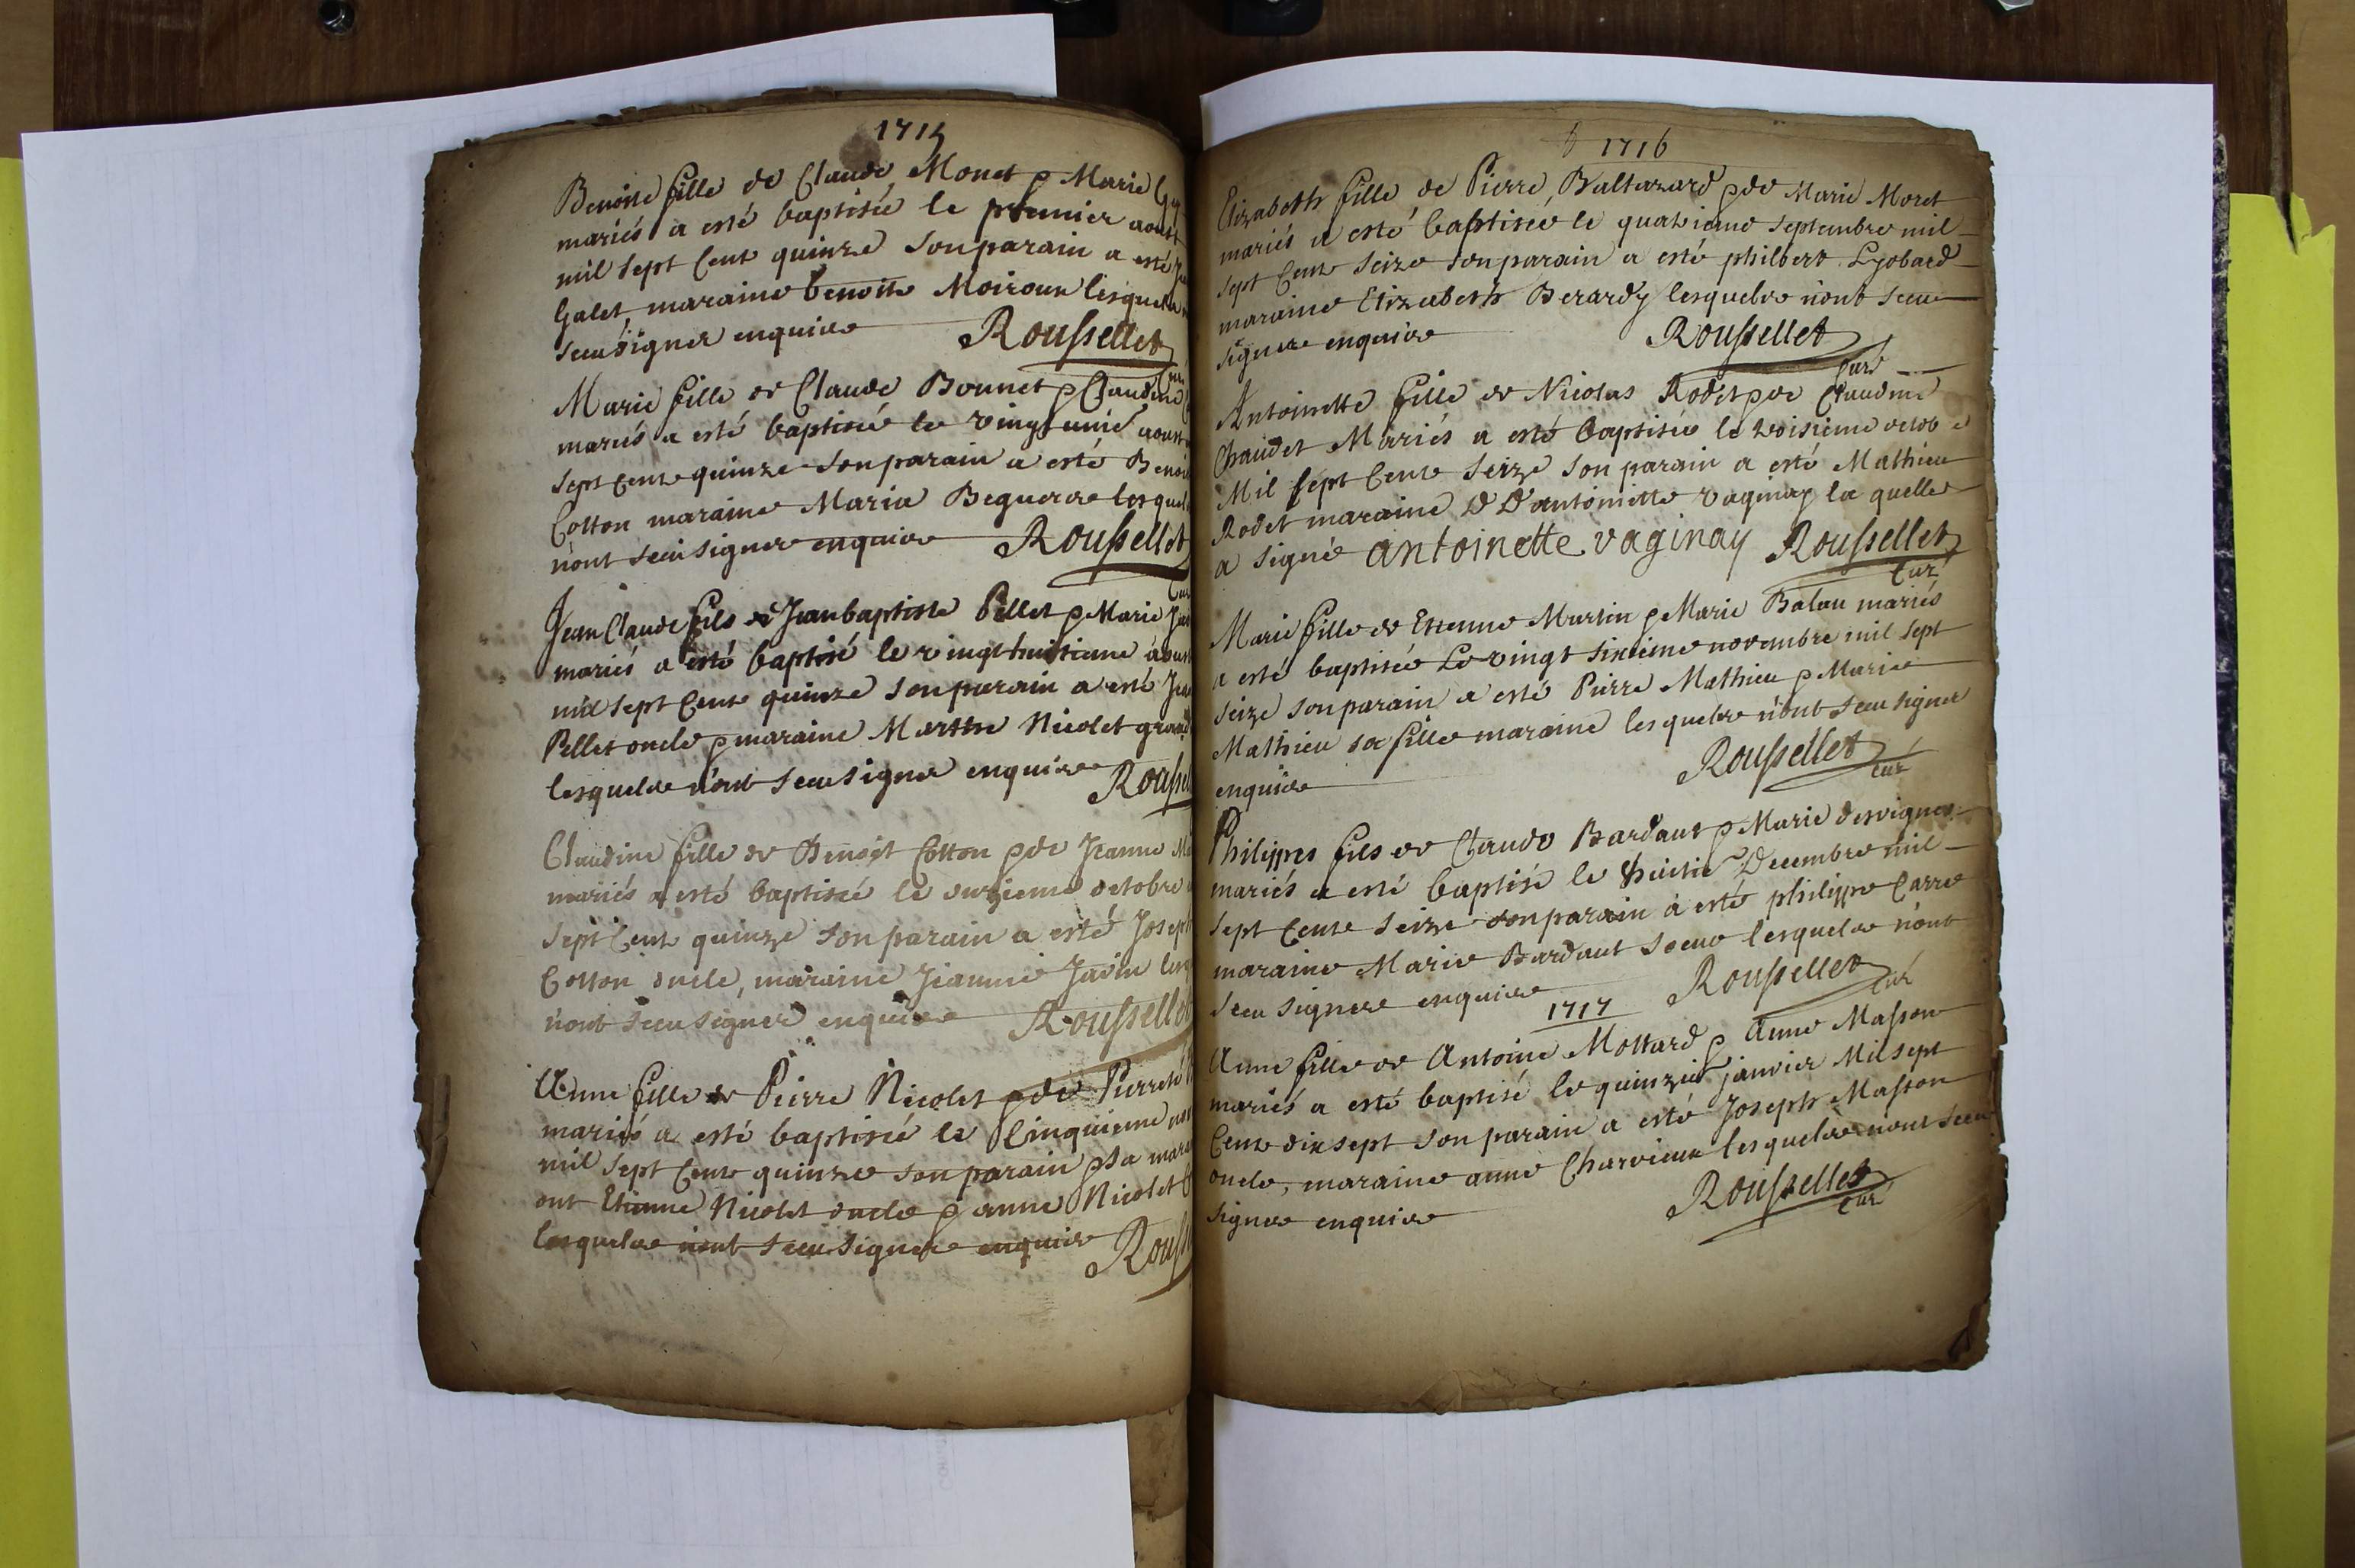 1715
Benoite fille de Claude Monet & Marie
mariés a esté baptisée le premier aoust
mil sept Cent quinze son parain a esté
Galet, maraine benoite Moiroux lesquels
sceu signer enquise Rousselet
Marie fille de Claude Bonnet & Claudine
mariés a esté baptisée le vingt unie aoust
sept cent quinze son parain a esté Benoit
Cotton maraine Maria Beguerre lesquels
n'ont sceu signer enquise Roussellet
Jean Claude fils de Jeanbaptiste Pellet & Marie
mariés a esté baptisé le vingt huitieme aoust
mil sept Cent quinze son parain a esté Jean
Pellet oncle & maraine Marthe Nicolet grand
lesquels n'ont sceu signer enquise Roussel
Claudine fille de Benoit Cotton & de Jeanne
mariés a esté baptisée le onzieme octobre
sept Cent quinze son parain a esté Joseph
Cotton oncle, maraine Jeanne Javin
n'ont sceu signer enquise Roussellet
Anne fille de Pierre Nicolet & de Pierrete
mariés a esté baptisée le Cinquieme
mil sept Cent quinze son parain & sa mara
ont Etienne Nicolet oncle & anne Nicolet
lesquels n'ont sceu signer enquise Rouss
1716
Elizabeth fille de Pierre Baltazard & de Marie Moret
mariés a esté baptisée le quatrieme septembre mil
sept Cent seize son parain a esté philbert Lyobard
maraine Elizabeth Berardy lesquels n'ont sceu
signer enquise Roussellet
Curé
Antoinette fille de Nicolas Rodet & de Claudine
Chaudet Mariés a esté baptisée le troisieme octobre
Mil sept Cent seize son parain a esté Mathieu
Rodet maraine D D antoinette vaginay la quelle
a signé antoinette vaginay Roussellet
Curé
Marie fille de Etienne Martin & Marie Balan mariés
a esté baptisée Le vingt sixieme novembre mil sept
seize son parain a esté Pierre Mathieu & Marie
Mathieu sa fille maraine lesquels n'ont sceu signer
enquise Roussellet
Curé
Philippes fils de Claude Bardaut & Marie desvignes
mariés a esté baptisé le huitie Decembre mil
sept Cent seize son parain a esté philippe Carre
maraine Marie Bardaut soeur lesquels n'ont
sceu signer enquise Roussellet
Curé
1717
Anne fille de Antoine Mottard & Anne Masson
mariés a esté baptisé le quinzie janvier Mil sept
Cent dix sept son parain a esté Joseph Masson
oncle, maraine anne Charvieux lesquels n'ont sceu
signer enquise Roussellet
Curé